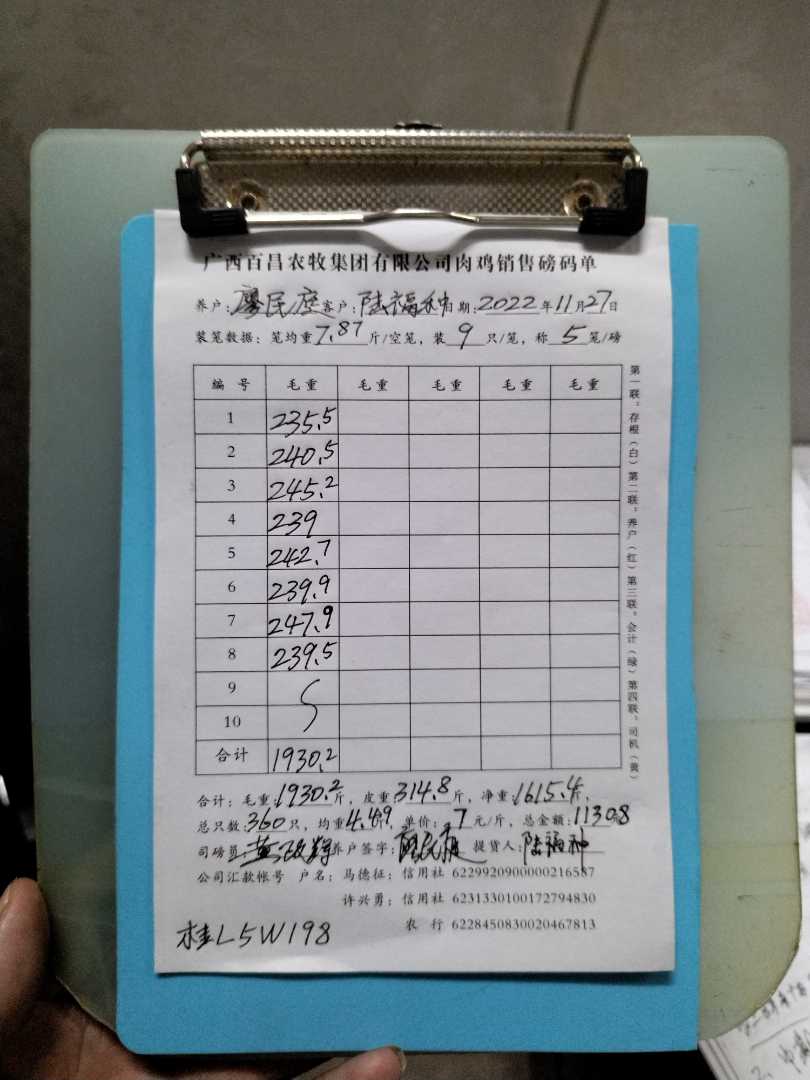 广西百昌农牧集团有限公司肉鸡销售磅码单
养户：廖民庭 客户：陆福种 日期：2022年11月27日
装笼数据：笔均重7.87斤/空笼，装9只/笼，称5笼/磅
编 号 毛重 毛重 毛重 毛重 毛重
1 235.5
2 240.5
3 245.2
4 239
5 242.7
6 239.9
7 247.9
8 239.5
9
10
合计 1930.2
合计：毛重：1930.2斤，皮重：314.8斤，净重：1615.4斤，
总只数：360只，均重4.49斤，单价：7元/斤，总金额：11308
司磅员：黄 养户签字：廖民庭 提货人：陆福种
公司汇款帐号 户名：马德征：信用社 6229920900000216587
许兴勇：信用社 6231330100172794830
农 行 6228450830020467813
桂L5W198
第一联：存根（白）第二联：养户（红）第三联：会计（绿）第四联：司机（黄）